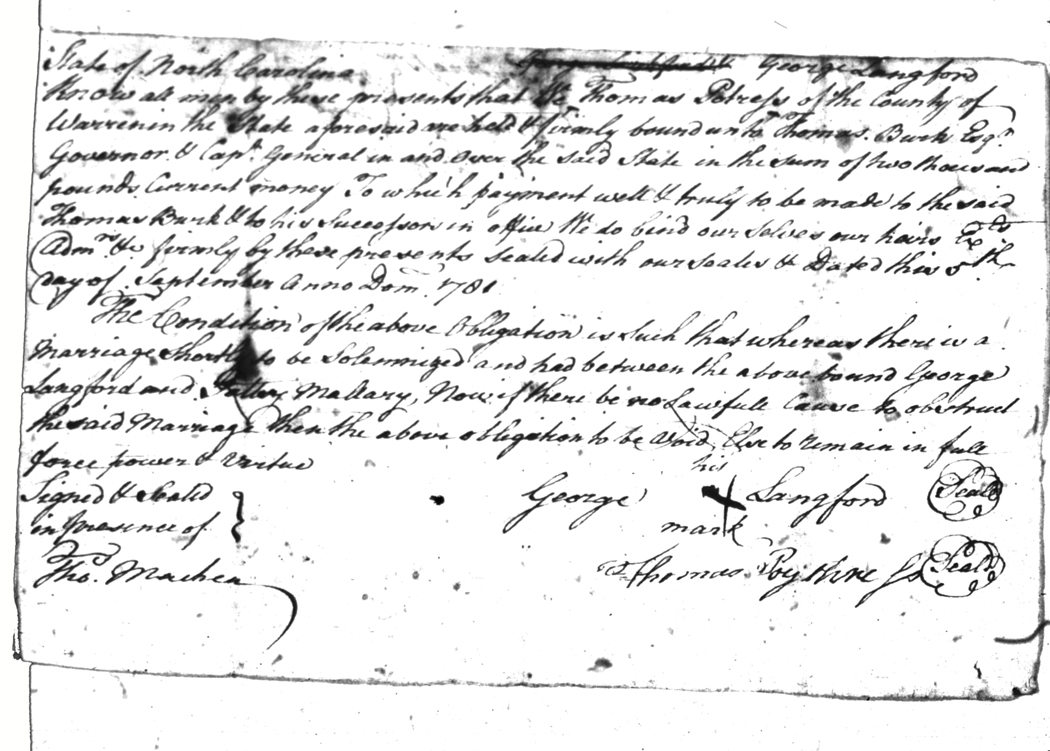 George Langford
State of North Carolina
Know all men by these presents that We Thomas Petress of the County of
Warren in the State aforesaid are held & firmly bound unto Thomas Burk Esqr.
Governor & Capt. General in and Over the said State in the sum of two thousand
pounds Current money To which payment well & truly to be made to the said
Thomas Burk & to his Successors in office We do bind our selves our heirs Exrs
Admrs &c firmly by these presents sealed with our seales & Dated this 5th
day of September Anno Dom. 1781
The Condition of the above Obligation is such that whereas there is a
Marriage Shortly to be Solemnized and had between the above bound George
Langford and Mallary, Now if there be no Lawfull Cause to obstruct
the said Marriage Then the above obligation to be Void, Else to remain in full
force power & Virtue
Signed & Seald
in presence of
Thos. Machen
his
George Langford Seald
mark
Thomas Poythress Seald